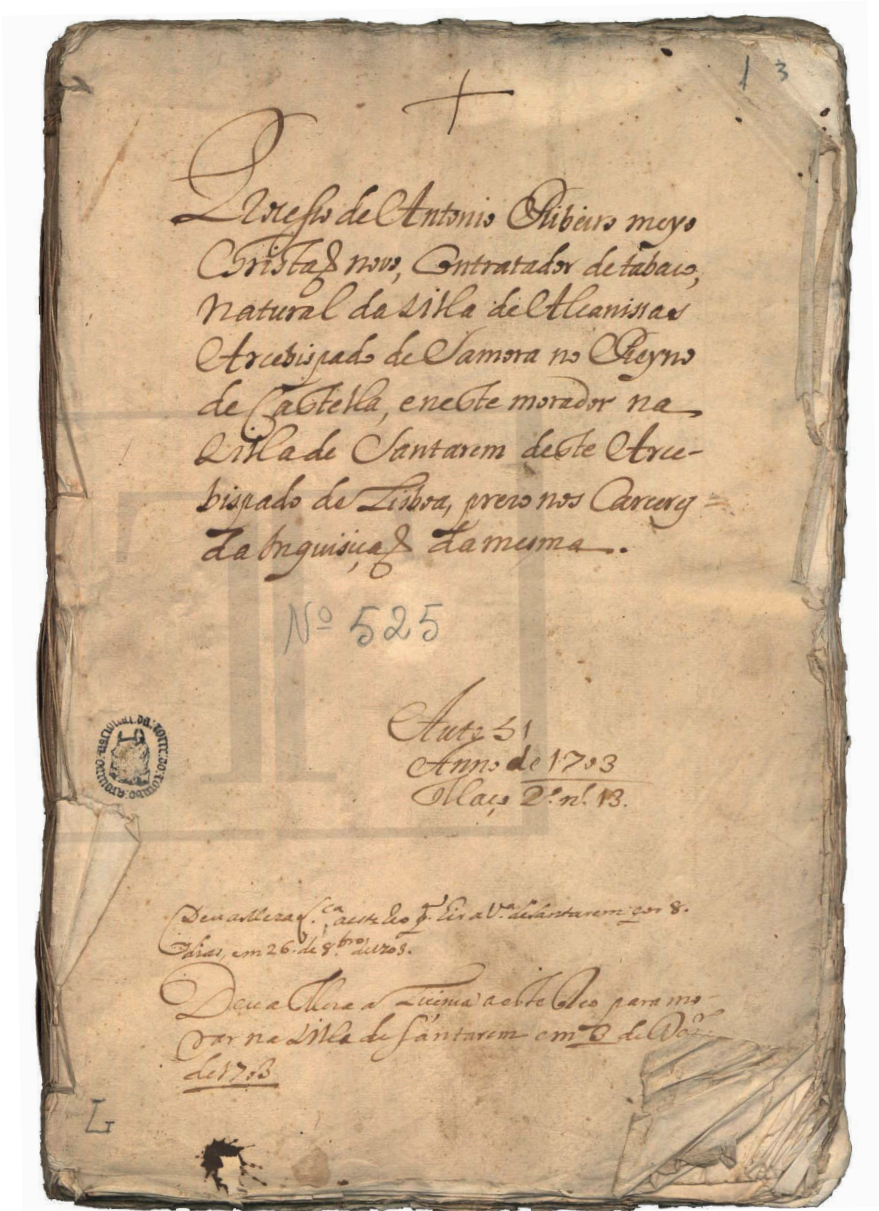 13
Processo de Antonio Ribeiro meyo
Christaõ novo, Contratador de tabaco,
natural da Villa de Alcanissas
Arcebispado de Samora no Reyno
de Castella, e neste morador na
Villa de Santarem deste Arce-
bispado de Lisboa, prezo nos Carcerẽs
da Inquisiçaõ da mesma.
Nº 525
Auto 51
Anno de 1703
Maço 2º nº 13.
Deu a Meza a este Reo pª hir a Vª de Santarem por 8.
dias, em 26. de 8.bro de 1703.
Deu a Meza a Licença a este Reo para mo-
rar na Villa de Santarem em 3 de
de 1703
ARQUIVO NACIONAL DA TORRE DO TOMBO
L